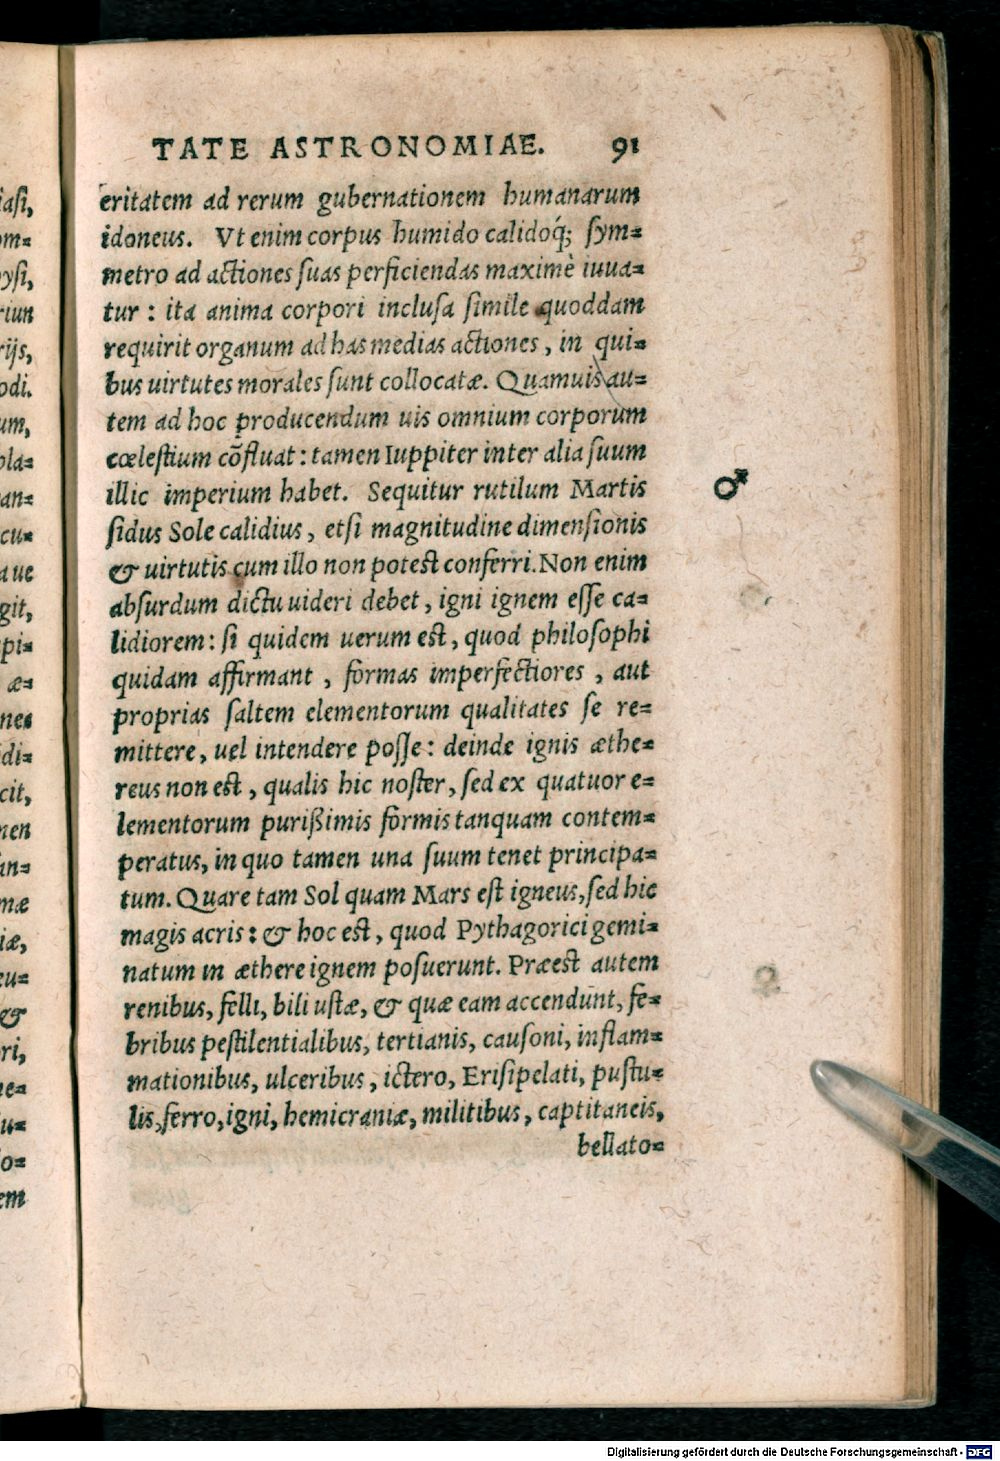 TATE ASTRONOMIAE. 91
eritatem ad rerum gubernationem humanarum
idoneus. Vt enim corpus humido calidoq́; sym=
metro ad actiones suas perficiendas maximè iuua=
tur : ita anima corpori inclusa simile quoddam
requirit organum ad has medias actiones, in qui=
bus uirtutes morales sunt collocatæ. Quamuis au=
tem ad hoc producendum uis omnium corporum
cœlestium cõfluat : tamen Iuppiter inter alia suum
illic imperium habet. Sequitur rutilum Martis
♂
sidus Sole calidius, etsi magnitudine dimensionis
& uirtutis cum illo non potest conferri. Non enim
absurdum dictu uideri debet, igni ignem esse ca=
lidiorem : si quidem uerum est, quod philosophi
quidam affirmant, formas imperfectiores, aut
proprias saltem elementorum qualitates se re=
mittere, uel intendere posse : deinde ignis æthe=
reus non est, qualis hic noster, sed ex quatuor e=
lementorum purißimis formis tanquam contem=
peratus, in quo tamen una suum tenet principa=
tum. Quare tam Sol quam Mars est igneus, sed hic
magis acris : & hoc est, quod Pythagorici gemi=
natum in æthere ignem posuerunt. Præest autem
renibus, felli, bili ustæ, & quæ eam accendunt, fe=
bribus pestilentialibus, tertianis, causoni, inflam=
mationibus, ulceribus, ictero, Erisipelati, pustu=
lis, ferro, igni, hemicraniæ, militibus, captitaneis,
bellato=
iasi,
om=
ysi,
riun
rijs,
odi.
um,
pla=
an=
cu=
que
git,
pi=
æ=
nes
di=
cit,
men
an=
mæ
iæ,
eu=
&
ri,
ne=
u=
o=
em
Digitalisierung gefördert durch die Deutsche Forschungsgemeinschaft - DFG